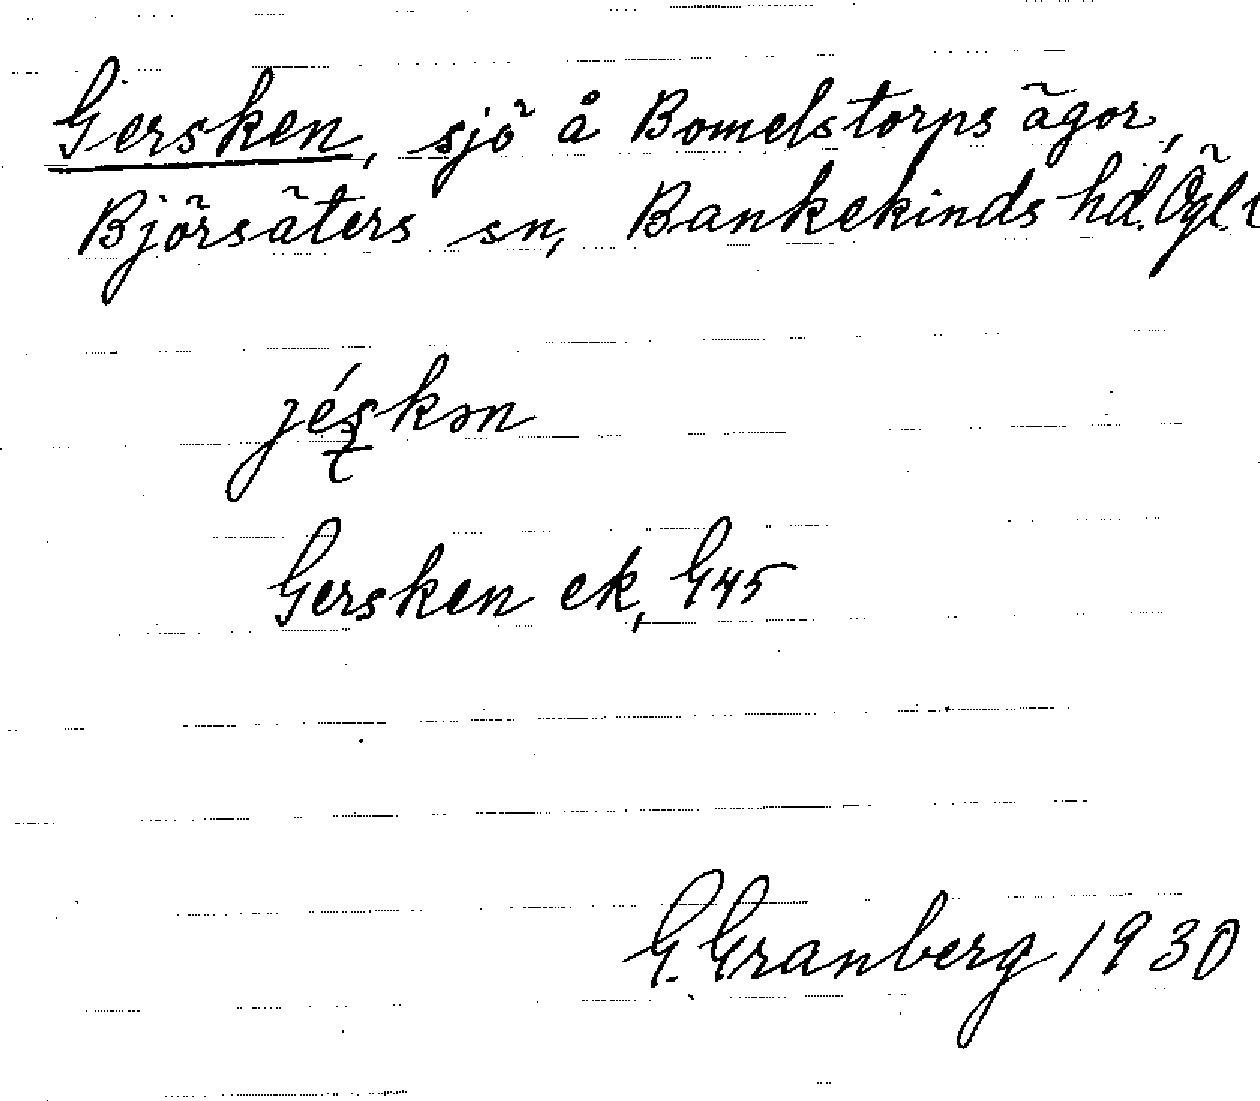 Gersken, sjö å Bomelstorps ägor,
Björsäters sn, Bankekinds hd. Ögl.
Gersken ek, G45
G. Granberg 1930